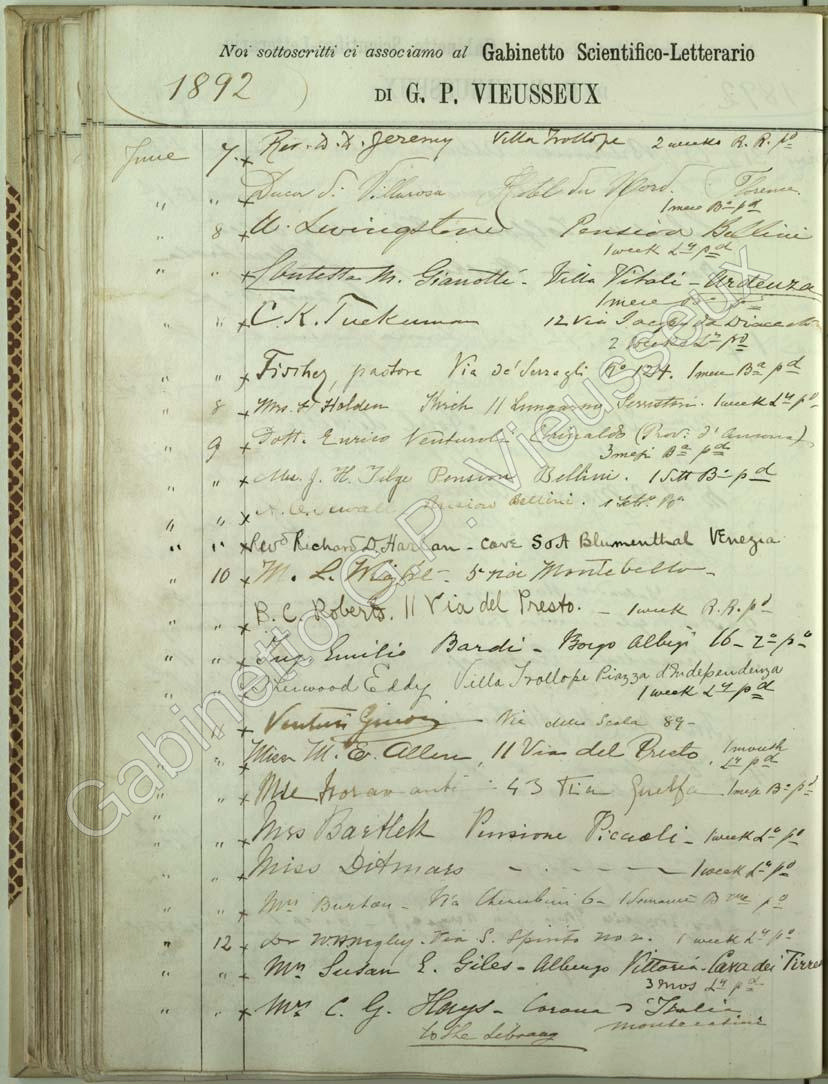 Noi sottoscritti ci associamo al Gabinetto Scientifico-Letterario
1892
DI G. P. VIEUSSEUX
June 7. Rev. D. D. Jeremy Villa Trollope 2 weeks R. R. pd
" " Duca di Villarosa Hotel du Nord. Florence
1 mese Ba pd
" 8 Livingstone Pension Bellini
1 week Ly pd
" " Contessa M. Gianotti - Villa Vitali - Ardenza
1 mese
" " C. K. Tuckerman 12 Via Jacopo da Diacceto
2 weeks Ly pd
" " Fischer, pastore Via de' Serragli No 124. 1 mese Ba pd
" 8 Mrs Holden 11 Lungarno Serristori. 1 week Ly pd
" 9 Dott. Enrico Venturoli (Prov. d'Ancona)
3 mesi Ba pd
" " J. H. Pension Bellini. 1 Sett Ba pd
" " Pension Bellini.
" " Revd Richard D. Harlan - care S & A Blumenthal Venezia
" 10 M. L. Wight - 5 via Montebello -
" " B. C. Roberts. 11 Via del Presto. - 1 week R. R. pd
" " Ing. Emilio Bardi - Borgo Albizi 16 - 2o po
" " Sherwood Eddy. Villa Trollope Piazza d'Independenza
1 week Ly pd
" 11 Venturi - Via della Scala 89 -
" " Miss M. E. Allen, 11 Via del Presto, 1 month
Ly pd
" " Mlle 43 Via Guelfa. 1 mese Ba pd
" " Mrs Bartlett Pensione Piccioli - 1 week Ly pd
" " Miss Ditmars - - - - 1 week Ly pd
" " Mrs Burton - Via Cherubini 6 - 1 Semaine pd
" 12 Via S. Spirito no 2. 1 week Ly pd
" " Mrs Susan E. Giles - Albergo Vittoria - Cava dei Tirreni
3 mos Ly pd
" " Mrs C. G. Hays - Corona d'Italia
to the Library Montecatini
Gabinetto G.P. Vieusseux